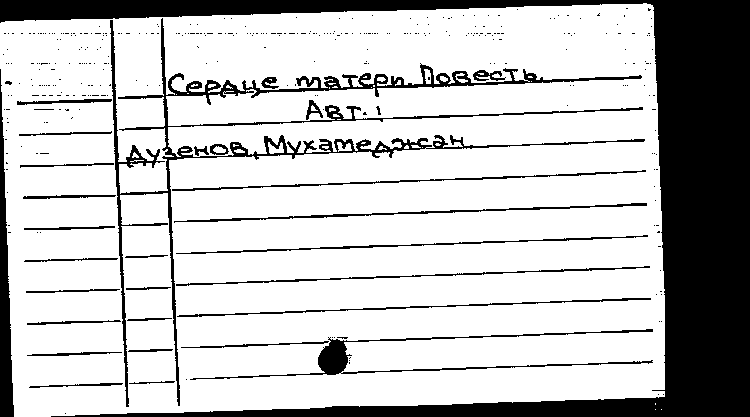 Сердце матери. Повесть.
Авт.:
Дузенов, Мухамеджан.